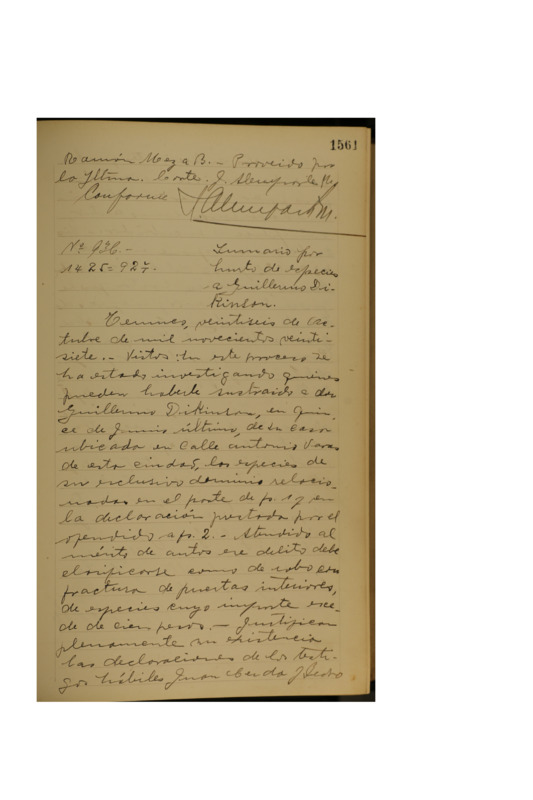 1561
Ramón Meza B. - Proveido por
la Iltma. Corte. J.
Conforme
No 936.-
1425=927.-
Sumario por
hurto de especies
a Guillermo Di-
kinson.
Temuco, veintiseis de Oc-
tubre de mil novecientos veinti-
siete.- Vistos: En este proceso se
ha estado investigando quienes
pueden haberle sustraido a don
Guillermo Dikinson, en quin-
ce de Junio último, de su casa
ubicada en Calle Antonio Varas
de esta ciudad, las especies de
su exclusivo dominio relacio-
nadas en el parte de fs. 1 y en
la declaración prestada por el
ofendido a fs. 2.- Atendido al
mérito de autos ese delito debe
clasificarse como de robo con
fractura de puertas interiores,
de especies cuyo importe exce-
de de cien pesos.- Justifican
plenamente su existencia
las declaraciones de los testi-
gos hábiles Juan Cerda y Pedro